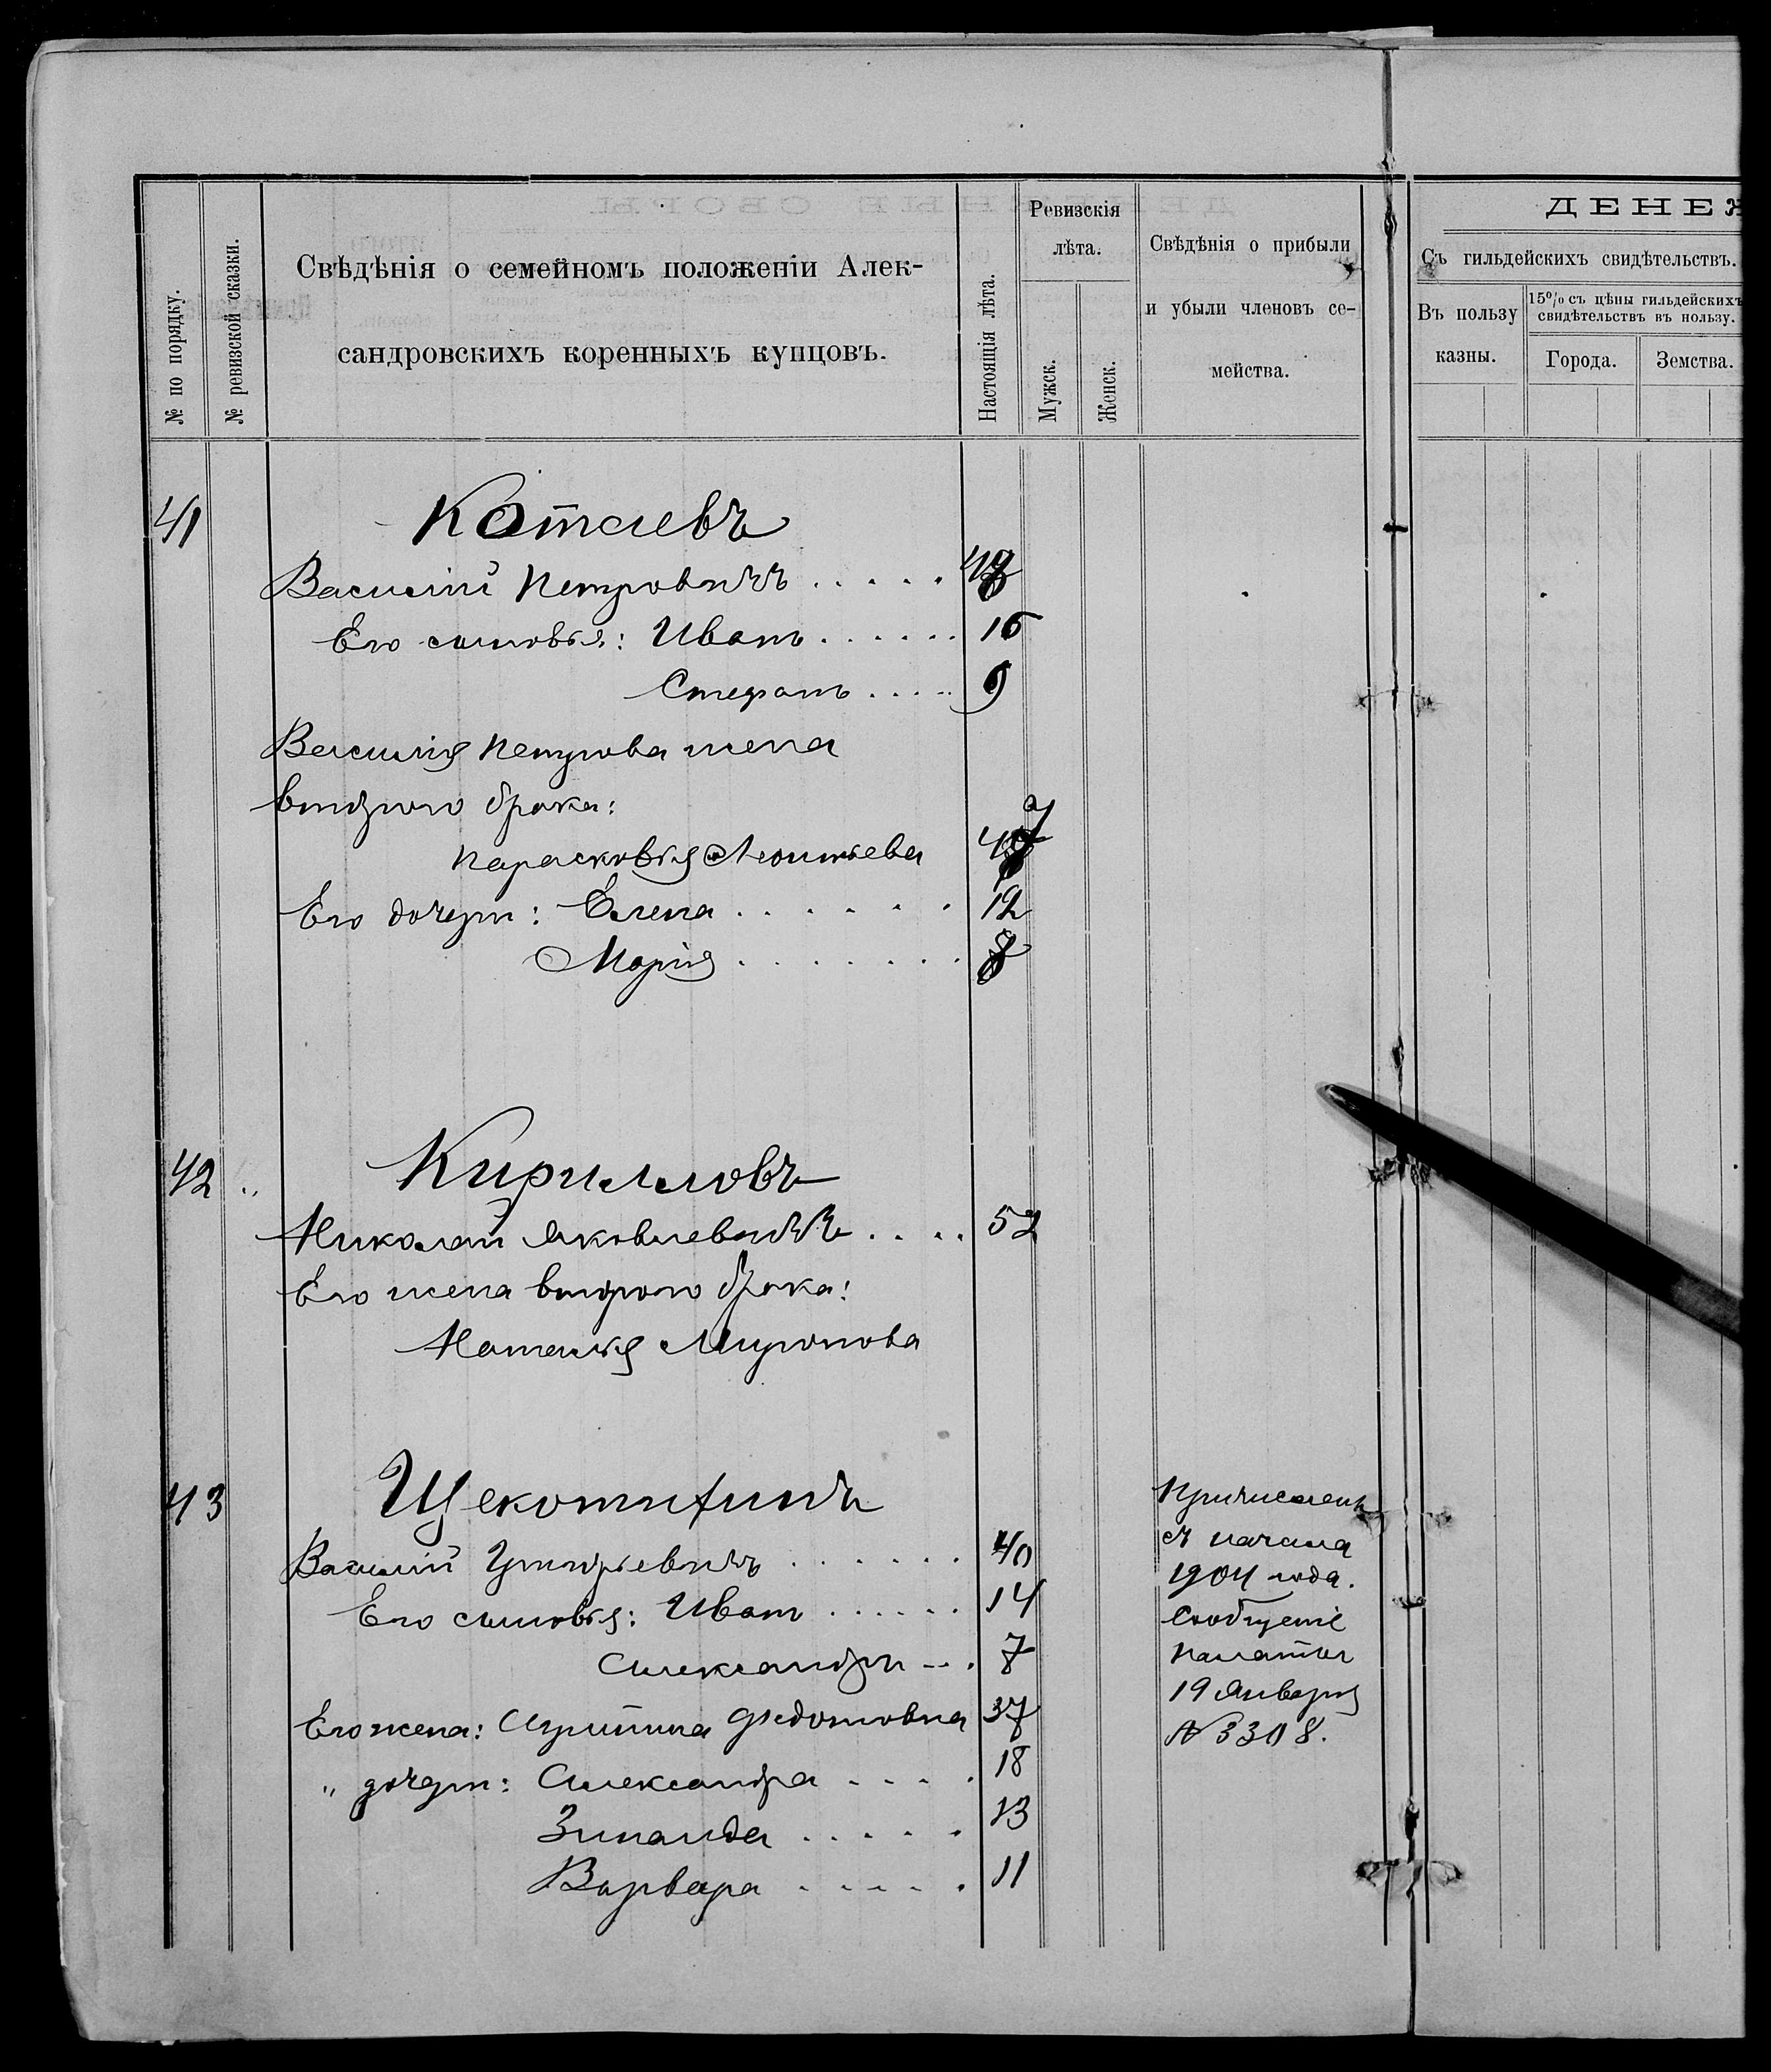 № по порядку.
№ ревизской сказки.
Свѣдѣнія о семейномъ положеніи Алек-
сандровскихъ коренныхъ купцовъ.
Настоящія лѣта.
Ревизскія
лѣта.
Мужск.
Женск.
Свѣдѣнія о прибыли
и убыли членовъ се-
мейства.
ДЕНЕЖ
Съ гильдейскихъ свидѣтельствъ.
Въ пользу
казны.
15% съ цѣны гильдейскихъ
свидѣтельствъ въ пользу.
Города.
Земства.
41 Котаевъ
Василій Петровичъ
Его сыновья: Иванъ 16
Стефанъ 9
Василія Петрова жена
второго брака:
Парасковья Леонтьева
Его дочери: Елена 12
Марія
42 Кирилловъ
Николай Яковлевичъ 52
Его жена второго брака:
Наталья Миронова
43 Щекотихинъ
Василій Григорьевичъ 40
Его сыновья: Иванъ 14
Александръ 7
Его жена: Агрипина Федотовна 37
" дочери: Александра 18
Зинаида 13
Варвара 11
Причисленъ
съ начала
1904 года.
Сообщеніе
Палаты
19 Января
№ 3308.